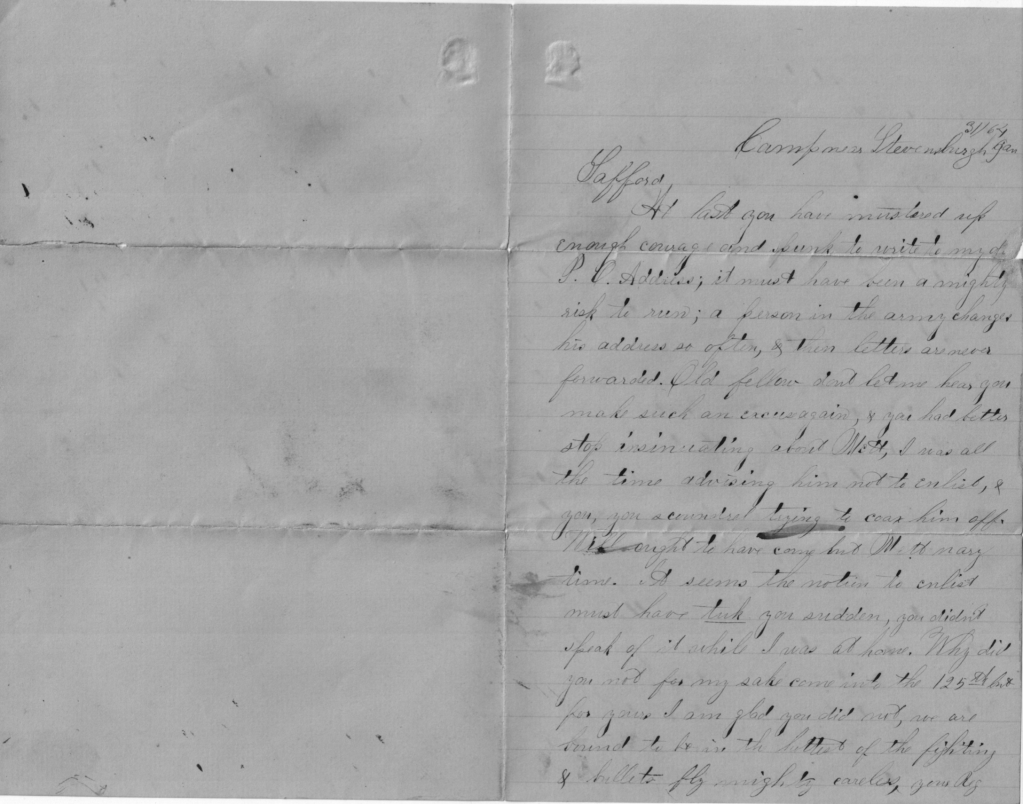 31/64
Camp near Stevensburgh Jan
Safford,
At last you have mustered up
enough courage and spunk to write to my
P. O. Address; it must have been a mighty
risk to run; a person in the army changes
his address so often, & then letters are never
forwarded. Old fellow dont let me hear you
make such an excuse again, & you had better
stop insinuating about Mett, I was all
the time advising him not to enlist, &
you, you scoundrel trying to coax him off.
Will ought to have come but Mett nary
time. It seems the notion to enlist
must have tuk you sudden, you didn't
speak of it while I was at home. Why did
you not for my sake come into the 125th but
for yours I am glad you did not, we are
bound to be in the hottest of the fighting
& bullets fly mighty careless, your